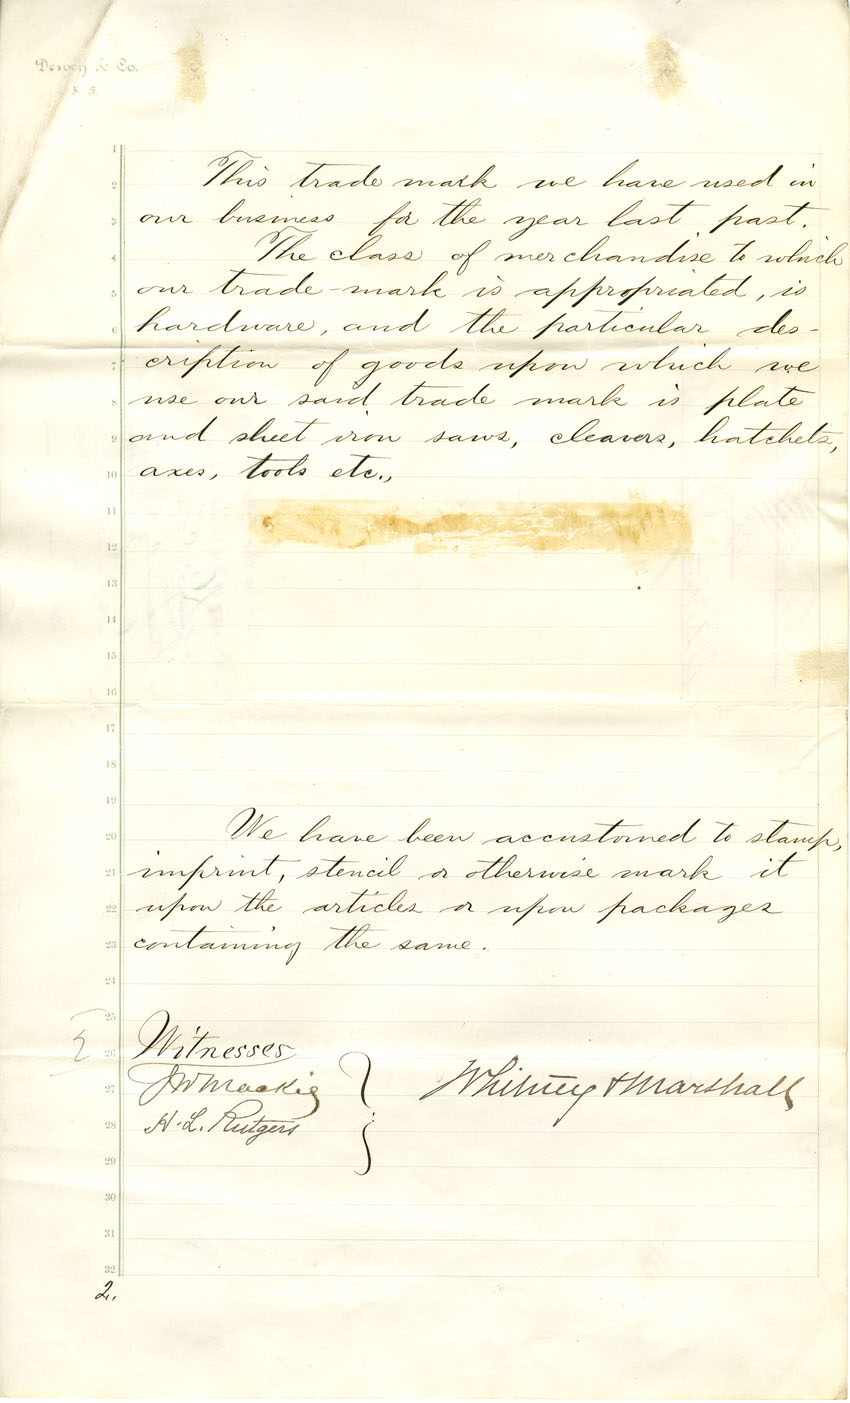 Dewey & Co.
S. F.
1
This trade mark we have used in
2
our business for the year last past.
3
The class of merchandise to which
4
our trade-mark is appropriated, is
5
hardware, and the particular des-
6
cription of goods upon which we
7
use our said trade mark is plate
8
and sheet iron saws, cleavers, hatchets,
9
axes, tools etc.,
10
11
12
13
14
15
16
17
18
19
We have been accustomed to stamp,
20
imprint, stencil or otherwise mark it
21
upon the articles or upon packages
22
containing the same.
23
24
25
Witnesses
26
J W Mackie
Whitney & Marshall
27
H. L. Rutgers
28
29
30
31
32
2.